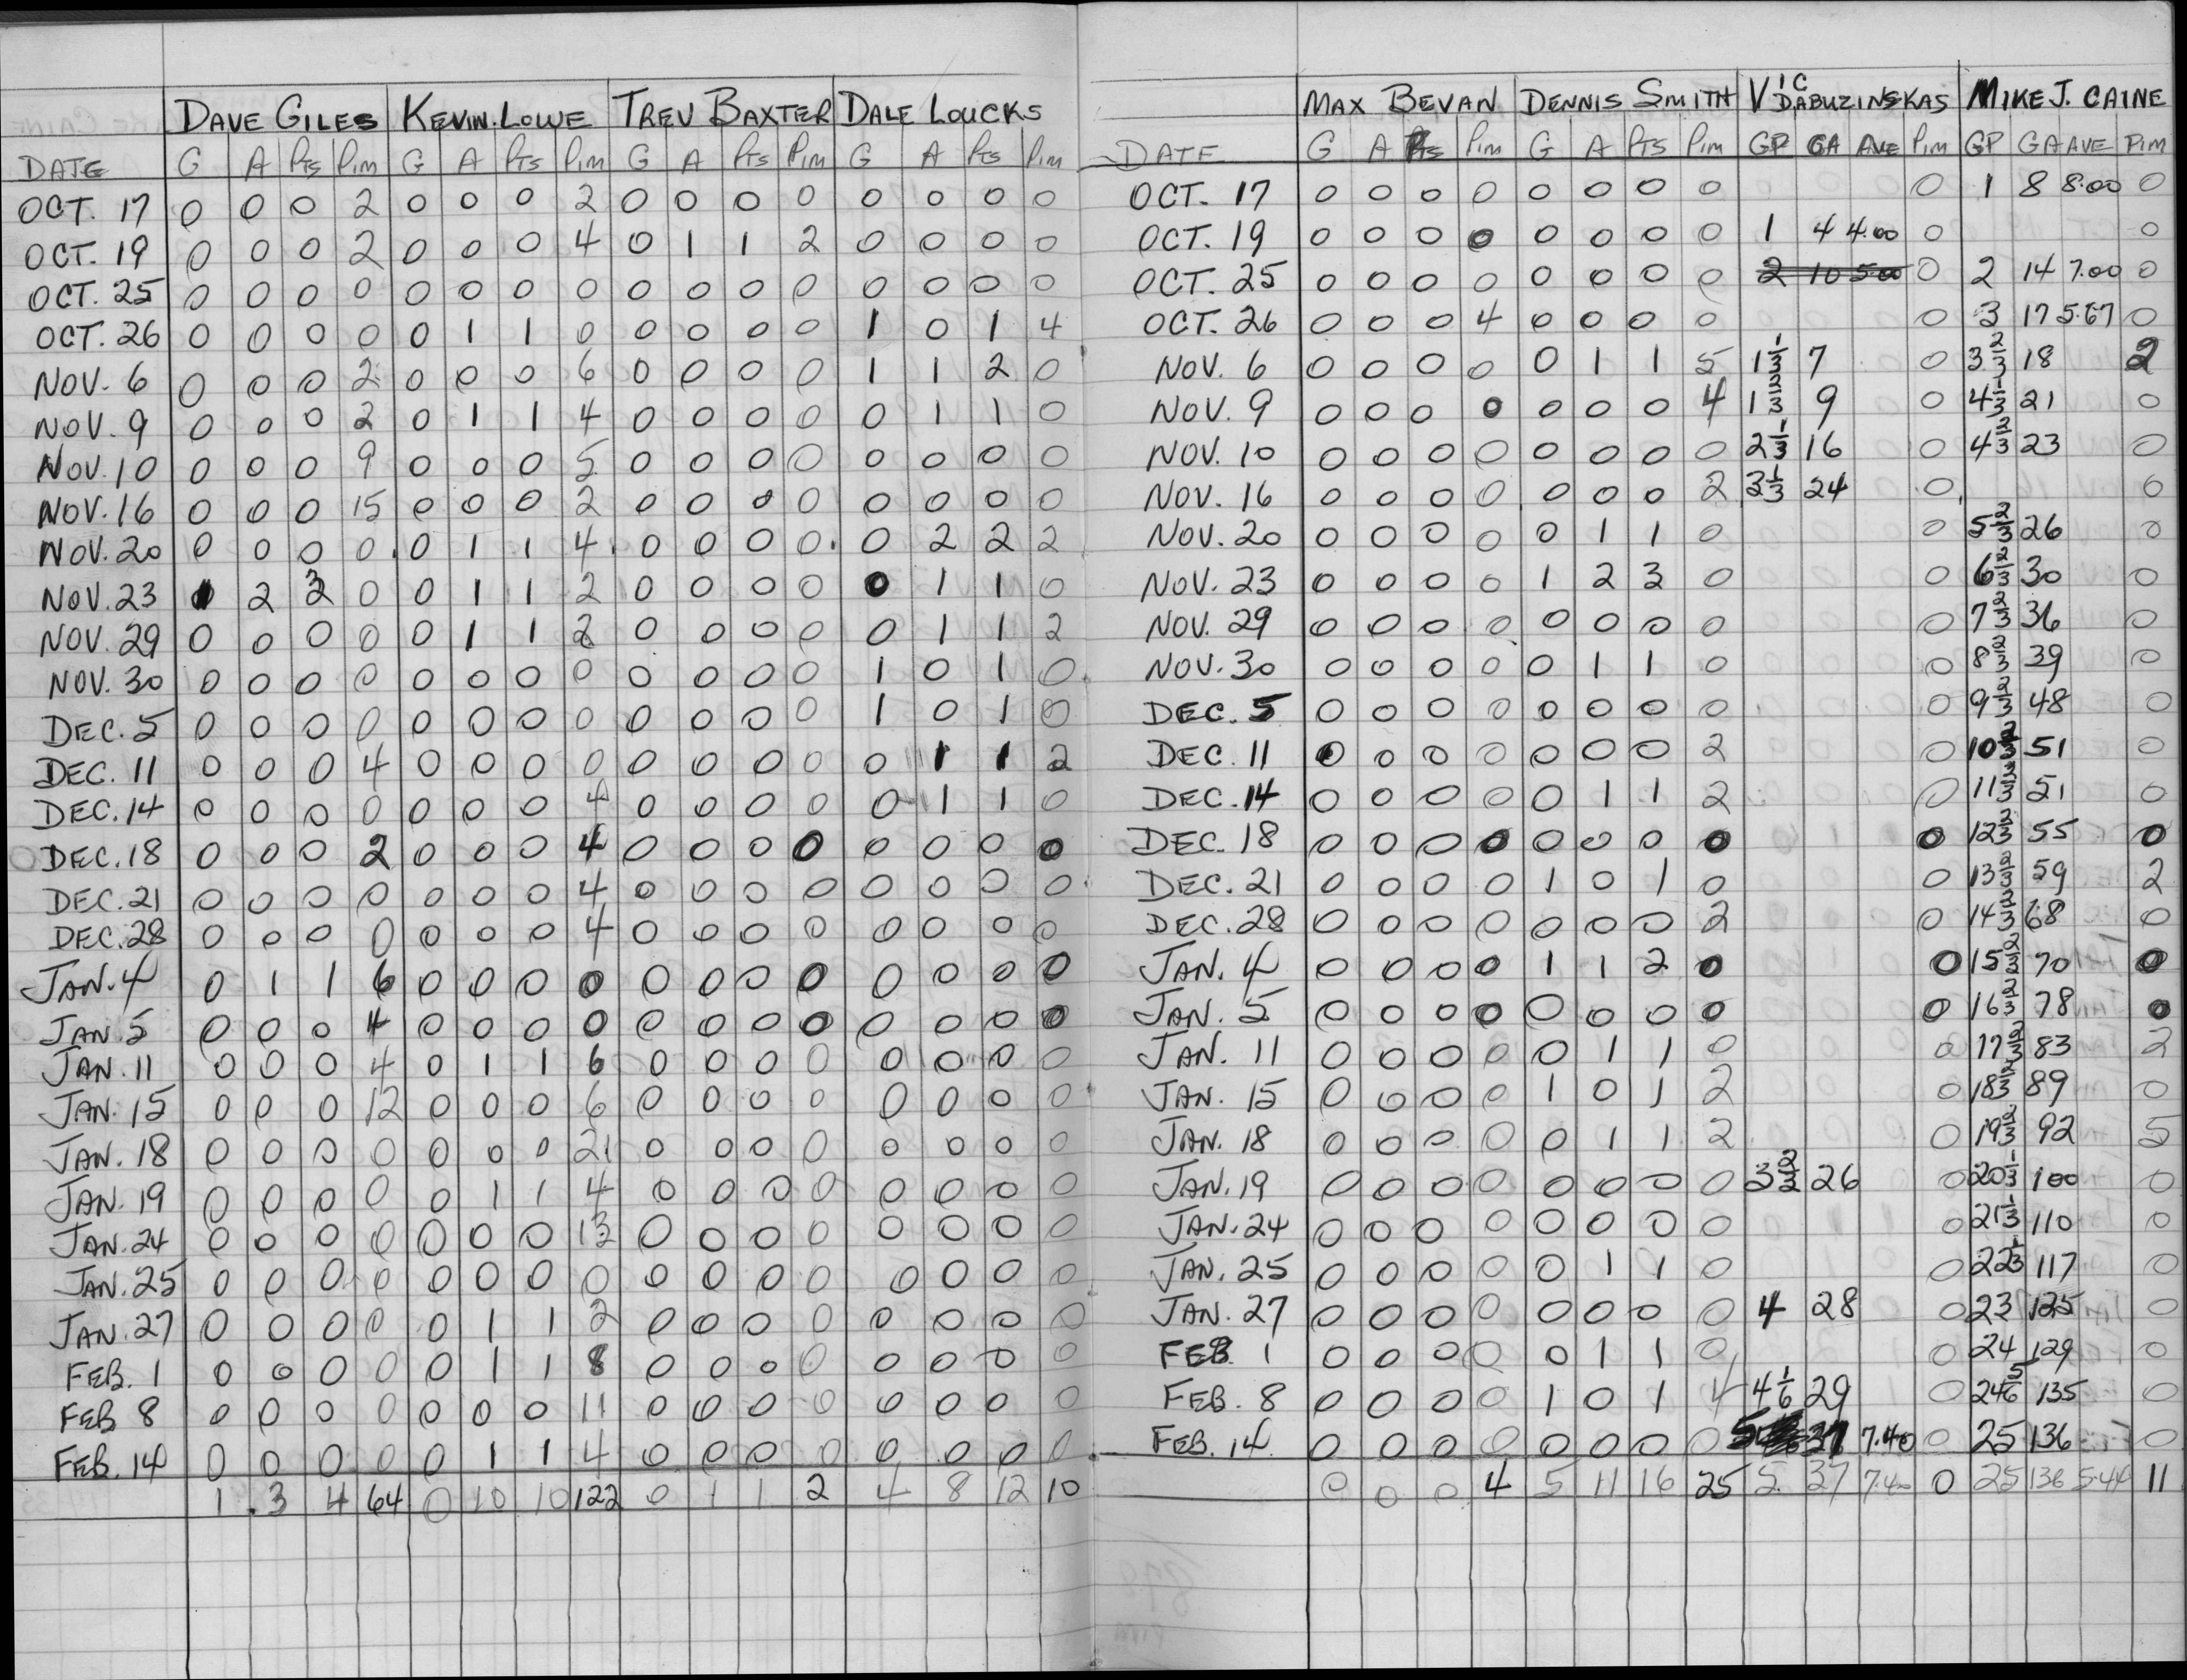 DAVE GILES KEVIN LOWE TREV BAXTER DALE LOUCKS
DATE G A Pts Pim G A Pts Pim G A Pts Pim G A Pts Pim
OCT. 17 0 0 0 2 0 0 0 2 0 0 0 0 0 0 0 0
OCT. 19 0 0 0 2 0 0 0 4 0 1 1 2 0 0 0 0
OCT. 25 0 0 0 0 0 0 0 0 0 0 0 0 0 0 0 0
OCT. 26 0 0 0 0 0 1 1 0 0 0 0 0 1 0 1 4
NOV. 6 0 0 0 2 0 0 0 6 0 0 0 0 1 1 2 0
NOV. 9 0 0 0 2 0 1 1 4 0 0 0 0 0 1 1 0
NOV. 10 0 0 0 9 0 0 0 5 0 0 0 0 0 0 0 0
NOV. 16 0 0 0 15 0 0 0 2 0 0 0 0 0 0 0 0
NOV. 20 0 0 0 0 0 1 1 4 0 0 0 0 0 2 2 2
NOV. 23 1 2 3 0 0 1 1 2 0 0 0 0 0 1 1 0
NOV. 29 0 0 0 0 0 1 1 2 0 0 0 0 0 1 1 2
NOV. 30 0 0 0 0 0 0 0 0 0 0 0 0 1 0 1 0
DEC. 5 0 0 0 0 0 0 0 0 0 0 0 0 1 0 1 0
DEC. 11 0 0 0 4 0 0 0 0 0 0 0 0 0 1 1 2
DEC. 14 0 0 0 0 0 0 0 4 0 0 0 0 0 1 1 0
DEC. 18 0 0 0 2 0 0 0 4 0 0 0 0 0 0 0 0
DEC. 21 0 0 0 0 0 0 0 4 0 0 0 0 0 0 0 0
DEC. 28 0 0 0 0 0 0 0 4 0 0 0 0 0 0 0 0
JAN. 4 0 1 1 6 0 0 0 0 0 0 0 0 0 0 0 0
JAN. 5 0 0 0 4 0 0 0 0 0 0 0 0 0 0 0 0
JAN. 11 0 0 0 4 0 1 1 6 0 0 0 0 0 0 0 0
JAN. 15 0 0 0 12 0 0 0 6 0 0 0 0 0 0 0 0
JAN. 18 0 0 0 0 0 0 0 21 0 0 0 0 0 0 0 0
JAN. 19 0 0 0 0 0 1 1 4 0 0 0 0 0 0 0 0
JAN. 24 0 0 0 0 0 0 0 13 0 0 0 0 0 0 0 0
JAN. 25 0 0 0 0 0 0 0 0 0 0 0 0 0 0 0 0
JAN. 27 0 0 0 0 0 1 1 2 0 0 0 0 0 0 0 0
FEB. 1 0 0 0 0 0 1 1 8 0 0 0 0 0 0 0 0
FEB 8 0 0 0 0 0 0 0 11 0 0 0 0 0 0 0 0
FEB. 14 0 0 0 0 0 1 1 4 0 0 0 0 0 0 0 0
1 3 4 64 0 10 10 122 0 1 1 2 4 8 12 10
MAX BEVAN DENNIS SMITH VIC DABUZINSKAS MIKE J. CAINE
DATE G A Pts Pim G A Pts Pim GP GA AVE Pim GP GA AVE Pim
OCT. 17 0 0 0 0 0 0 0 0 0 1 8 8.00 0
OCT. 19 0 0 0 0 0 0 0 0 1 4 4.00 0 0
OCT. 25 0 0 0 0 0 0 0 0 2 10 5.00 0 2 14 7.00 0
OCT. 26 0 0 0 4 0 0 0 0 0 3 17 5.67 0
NOV. 6 0 0 0 0 0 1 1 5 1 1/3 7 0 3 2/3 18 2
NOV. 9 0 0 0 0 0 0 0 4 1 2/3 9 0 4 1/3 21 0
NOV. 10 0 0 0 0 0 0 0 0 2 1/3 16 0 4 2/3 23 0
NOV. 16 0 0 0 0 0 0 0 2 3 1/3 24 0 0
NOV. 20 0 0 0 0 0 1 1 0 0 5 2/3 26 0
NOV. 23 0 0 0 0 1 2 3 0 0 6 2/3 30 0
NOV. 29 0 0 0 0 0 0 0 0 0 7 2/3 36 0
NOV. 30 0 0 0 0 0 1 1 0 0 8 2/3 39 0
DEC. 5 0 0 0 0 0 0 0 0 0 9 2/3 48 0
DEC. 11 0 0 0 0 0 0 0 2 0 10 2/3 51 0
DEC. 14 0 0 0 0 0 1 1 2 0 11 2/3 51 0
DEC. 18 0 0 0 0 0 0 0 0 0 12 2/3 55 0
DEC. 21 0 0 0 0 1 0 1 0 0 13 2/3 59 2
DEC. 28 0 0 0 0 0 0 0 2 0 14 2/3 68 0
JAN. 4 0 0 0 0 1 1 2 0 0 15 2/3 70 0
JAN. 5 0 0 0 0 0 0 0 0 0 16 2/3 78 0
JAN. 11 0 0 0 0 0 1 1 0 0 17 2/3 83 2
JAN. 15 0 0 0 0 1 0 1 2 0 18 2/3 89 0
JAN. 18 0 0 0 0 0 1 1 2 0 19 2/3 92 5
JAN. 19 0 0 0 0 0 0 0 0 3 2/3 26 0 20 1/3 100 0
JAN. 24 0 0 0 0 0 0 0 0 0 21 1/3 110 0
JAN. 25 0 0 0 0 0 1 1 0 0 22 1/3 117 0
JAN. 27 0 0 0 0 0 0 0 0 4 28 0 23 125 0
FEB. 1 0 0 0 0 0 1 1 0 0 24 129 0
FEB. 8 0 0 0 0 1 0 1 4 4 1/6 29 0 24 5/6 135 0
FEB. 14 0 0 0 0 0 0 0 0 5 37 7.40 0 25 136 0
0 0 0 4 5 11 16 25 5 37 7.40 0 25 136 5.44 11